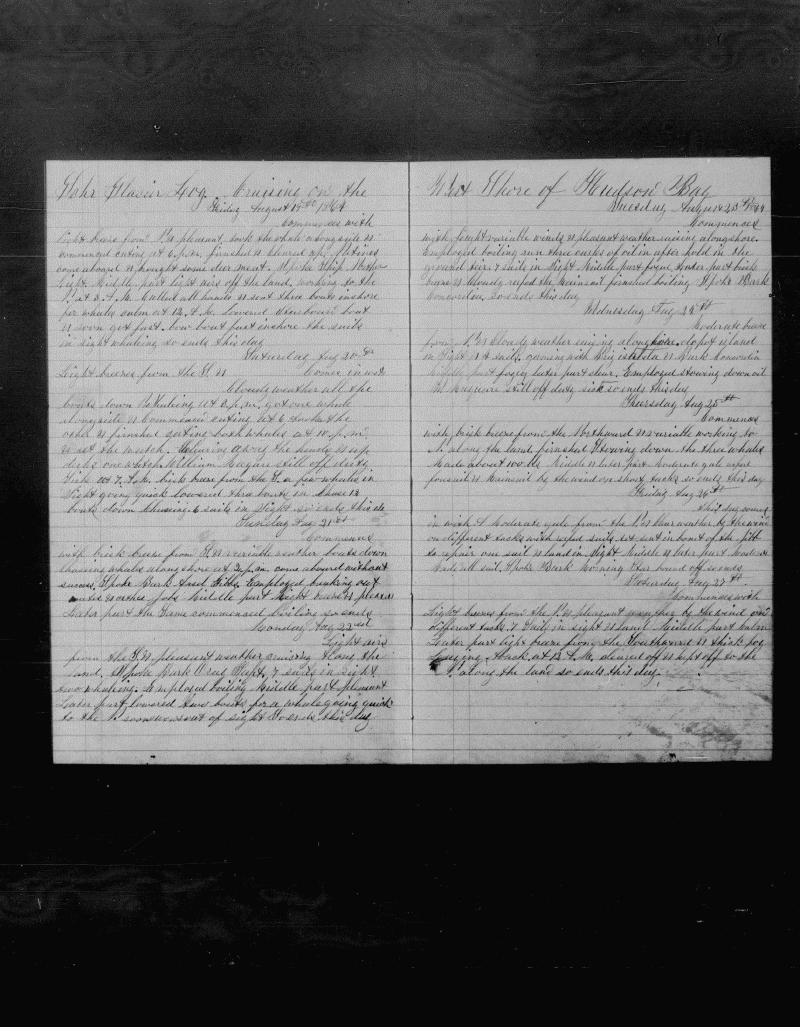 Schr Glacier Log Cruising on the
Friday August 19th 1864
Commences with
light breeze from N & pleasant took the whale alongside &
commenced cutting at 6 p.m. finished & cleared up. Natives
come aboard & bought some deer meat. Spoke Ship
Light. Middle part light airs off the land, working to the
N at 3 A.M. called all hands & sent three boats inshore
for whales calm at 12, A.M. Lowered Starboard boat
& soon got fast. bow boat fast inshore the sails
in sight whaling so ends this day
Saturday Aug 20th
Light breezes from the S. & Comes in with
Cloudy weather all the
boats down Whaleing at 2 p.m. got one whale
alongside & Commenced cutting at 6 took the
other & finished cutting both whales at 10 p.m.
& set the watch. the heads & up
decks one watch William Maguire still off duty
Sick at 7, A.M. brisk breeze from the S. a few whales in
Sight going quick lowered three boats in Chase 12
boats down Chaseing. 6 sails in sight so ends this da
Sunday Aug 21st
Commences
with brisk breeze from S. & variable weather boats down
chaseing whales alongshore at 2 p.m. come aboard without
success. Spoke Bark Ansel Gibbs. Employed breaking out
water & other jobs Middle part light breeze & pleasa
Later part the Same commenced boiling so ends
Monday Aug 22nd
Light airs
from the S. & pleasant weather cruising along the
land. Spoke Bark Tapt, 7 sails in sight
two whaleing. Employed boiling Middle part pleasant
Later part lowered two boats for a whale going quick
to the N. soon was out of sight So ends this day

West Shore of Hudson Bay
Tuesday August 23rd 1864
Commences
with light variable winds & pleasant weather cruising alongshore.
Employed boiling run three casks of oil in after hold in the
ground tier. 7 sails in sight. Middle part foggy. Later part brisk
breeze & Cloudy reefed the mainsail finished boiling. Spoke Bark
Monwonton. So ends this day
Wednesday Aug 24th
Moderate breeze
from N. & Cloudy weather cruising alongshore. depot island
in Sight & 4 sails. gaming with Brig Isabella & Bark Monwonton
Middle part foggy later part clear. Employed stowing down oil
Wm Maguire still off duty sick so ends this day
Thursday Aug 25th
Commences
with brisk breeze from the Northward & variable working to
N. along the land. finished Stowing down the three whales
Made about 100 bbls Middle & later part Moderate gale reefed
foresail & Mainsail by the wind on short tacks so ends this day
Friday Aug 26th
this day comes
in with a moderate gale from the N. & Clear weather by the wind
on different tacks with reefed sails. Unbent the jib
to repair one sail & land in sight Middle & later part Moderate
Made all sail. Spoke Bark Morning Star bound off so ends
Saturday Aug 27th
Commences with
Light breeze from the N. & pleasant weather by the wind on
different tacks. 7 Sail in sight & land. Middle part Calm
Later part light breeze from the Southward & thick fog
Laying aback at 12, A.M. cleared off & kept off to the
N. along the land so ends this day.